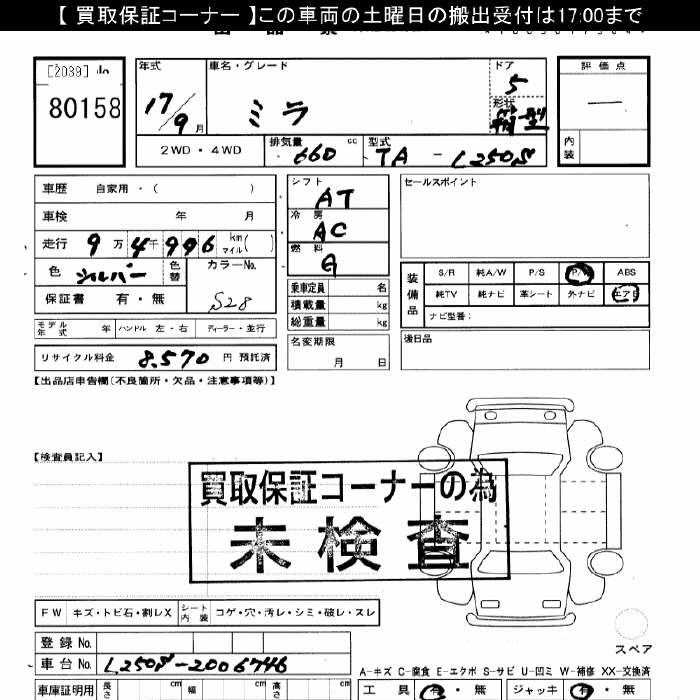 【 買取保証コーナー 】この車両の土曜日の搬出受付は17:00まで
[2039]
80158
年式
17/9月
車名・グレード
ミラ
ドア
5
形状
箱型
評価点
—
内装
2WD・4WD
排気量
660 cc
型式
TA - L250S
車歴 自家用・( )
車検 年 月
走行 9万4千996 km マイル( )
色 シルバー
色替
カラーNo.
S28
保証書 有・無
シフト
AT
冷房
AC
燃料
G
乗車定員 名
積載量 kg
総重量 kg
セールスポイント
装備品
S/R 純A/W P/S P/W ABS
純TV 純ナビ 革シート 外ナビ エアB
ナビ型番:
モデル年式 年 ハンドル 左・右 ディーラー・並行
名変期限
月 日
後日品
リサイクル料金 8,570 円 預託済
【出品店申告欄(不良箇所・欠品・注意事項等)】
【検査員記入】
買取保証コーナーの為
未検査
FW キズ・トビ石・割レX シート内装 コゲ・穴・汚レ・シミ・破レ・スレ
登録 No.
車台 No. L250S-2006746
スペア
A-キズ C-腐食 E-エクボ S-サビ U-凹ミ W-補修 XX-交換済
車庫証明用 長さ cm 幅 cm 高さ cm
工具 有・無 ジャッキ 有・無